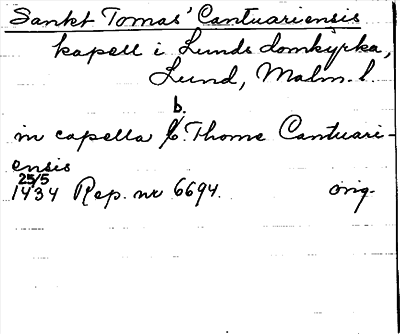 Sankt Tomas' Cantuariensis
kapell i Lunds domkyrka,
Lund, Malm. l.
b.
in capella b. Thome Cantuari-
ensis
25/5
1434 Rep. nr 6694. orig.